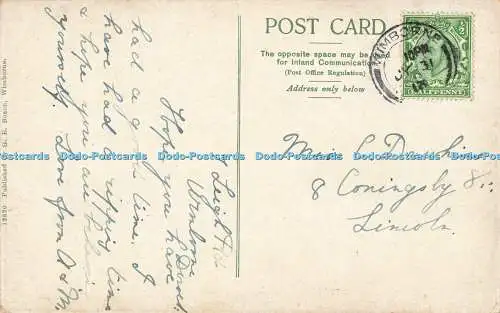 POST CARD
The opposite space may be used
for Inland Communication
(Post Office Regulation)
Address only below
WIMBORNE
HALFPENNY
Miss L
& Coningsby St.
Lincoln.
Leigh
Wimborne
Dorset.
Hope you have
had a good time. I
have had a ripping time
& hope you are
yourself. Love from A & M.
Published by G. R. Wimborne.
Dodo-Postcards Dodo-Postcards Dodo-Postcards Dodo-Postcards Dodo-Postcards Dodo-Postcards